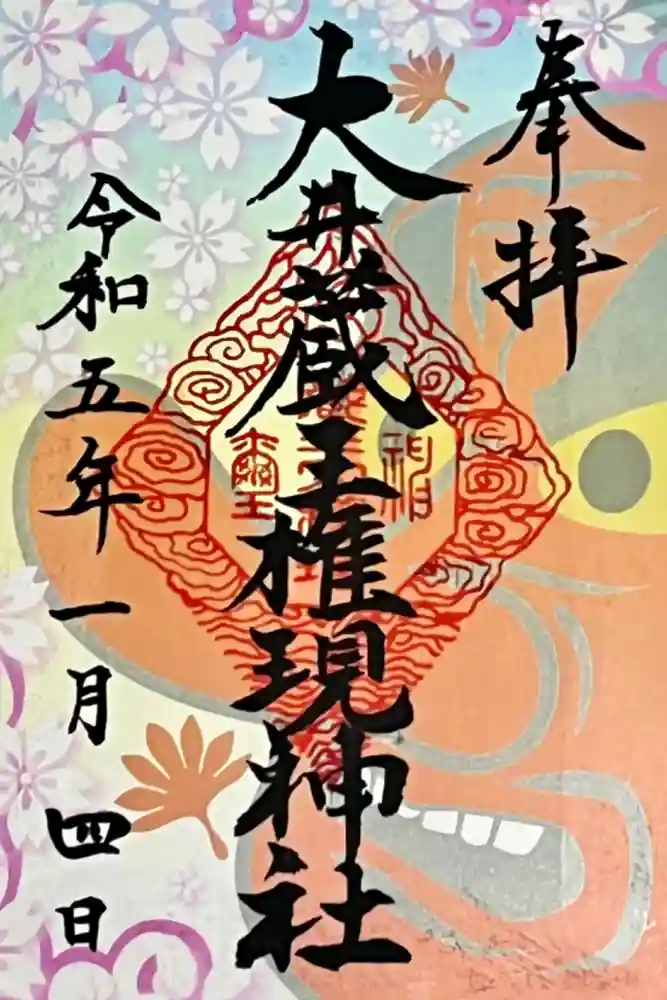 奉拝
大井蔵王権現神社
令和五年一月四日